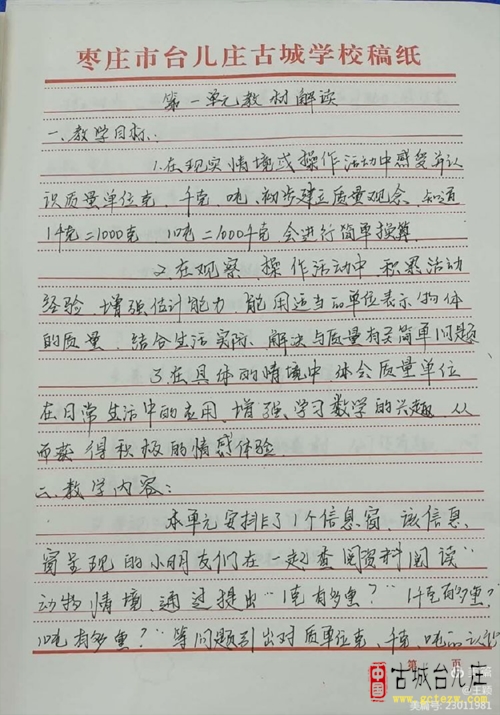 枣庄市台儿庄古城学校稿纸
第一单元教材解读
一、教学目标:
1.在现实情境或操作活动中感受并认
识质量单位克、千克、吨,初步建立质量观念,知道
1千克=1000克,1吨=1000千克,会进行简单换算.
2.在观察、操作活动中,积累活动
经验,增强估计能力,能用适当的单位表示物体
的质量,结合生活实际、解决与质量有关简单问题
3.在具体的情境中,体会质量单位
在日常生活中的应用,增强学习数学的兴趣,从
而获得积极的情感体验
二、教学内容:
本单元安排了1个信息窗,该信息
窗呈现的小朋友们在一起查阅资料阅读"
动物情境,通过提出"1克有多重?""1千克有多重?
1吨有多重?"等问题引出对质单位克、千克、吨的认识
第 页
中国 古城台儿庄
www.gctezw.com
美编号: 23011981